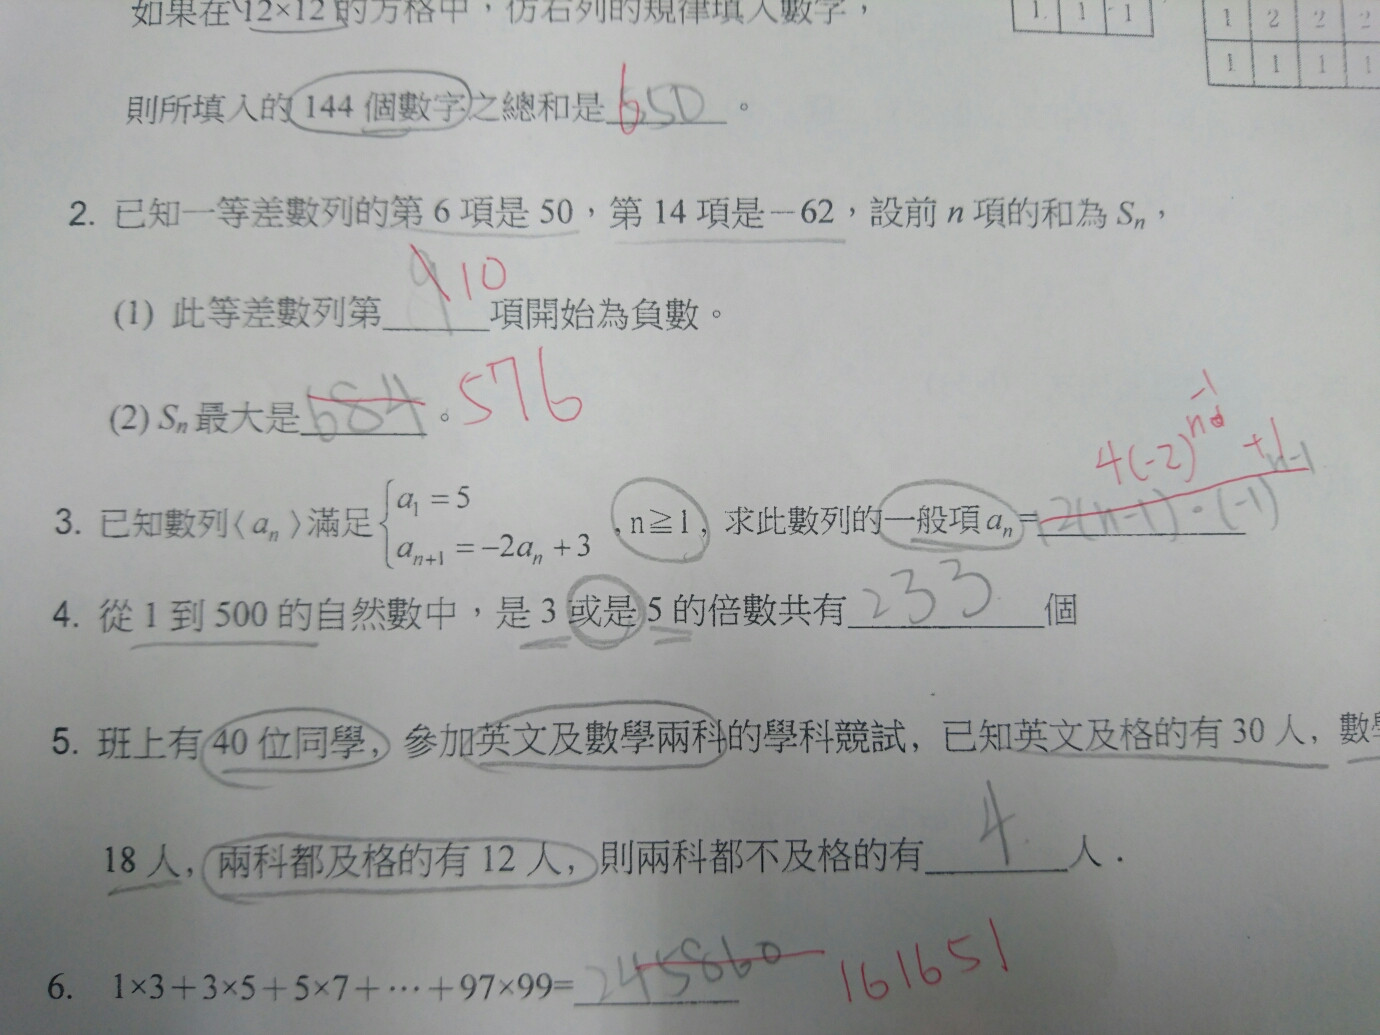 如果在 12×12 的方格中，仿右列的規律填入數字，
1 1 1
1 2 2 2
1 1 1 1
則所填入的 144 個數字之總和是 650 。
2. 已知一等差數列的第 6 項是 50，第 14 項是－62，設前 n 項的和為 Sn，
(1) 此等差數列第 9 10 項開始為負數。
(2) Sn 最大是 684 。 576
4(-2)^n-1 +1
3. 已知數列〈an〉滿足 { a1 = 5 , n≧1, 求此數列的一般項 an= 2(n-1)·(-1)^n-1
an+1 = −2an + 3
4. 從 1 到 500 的自然數中，是 3 或是 5 的倍數共有 233 個
5. 班上有 40 位同學, 參加英文及數學兩科的學科競試, 已知英文及格的有 30 人, 數
18 人, 兩科都及格的有 12 人, 則兩科都不及格的有 4 人.
6. 1×3＋3×5＋5×7＋⋯＋97×99= 245860 161651